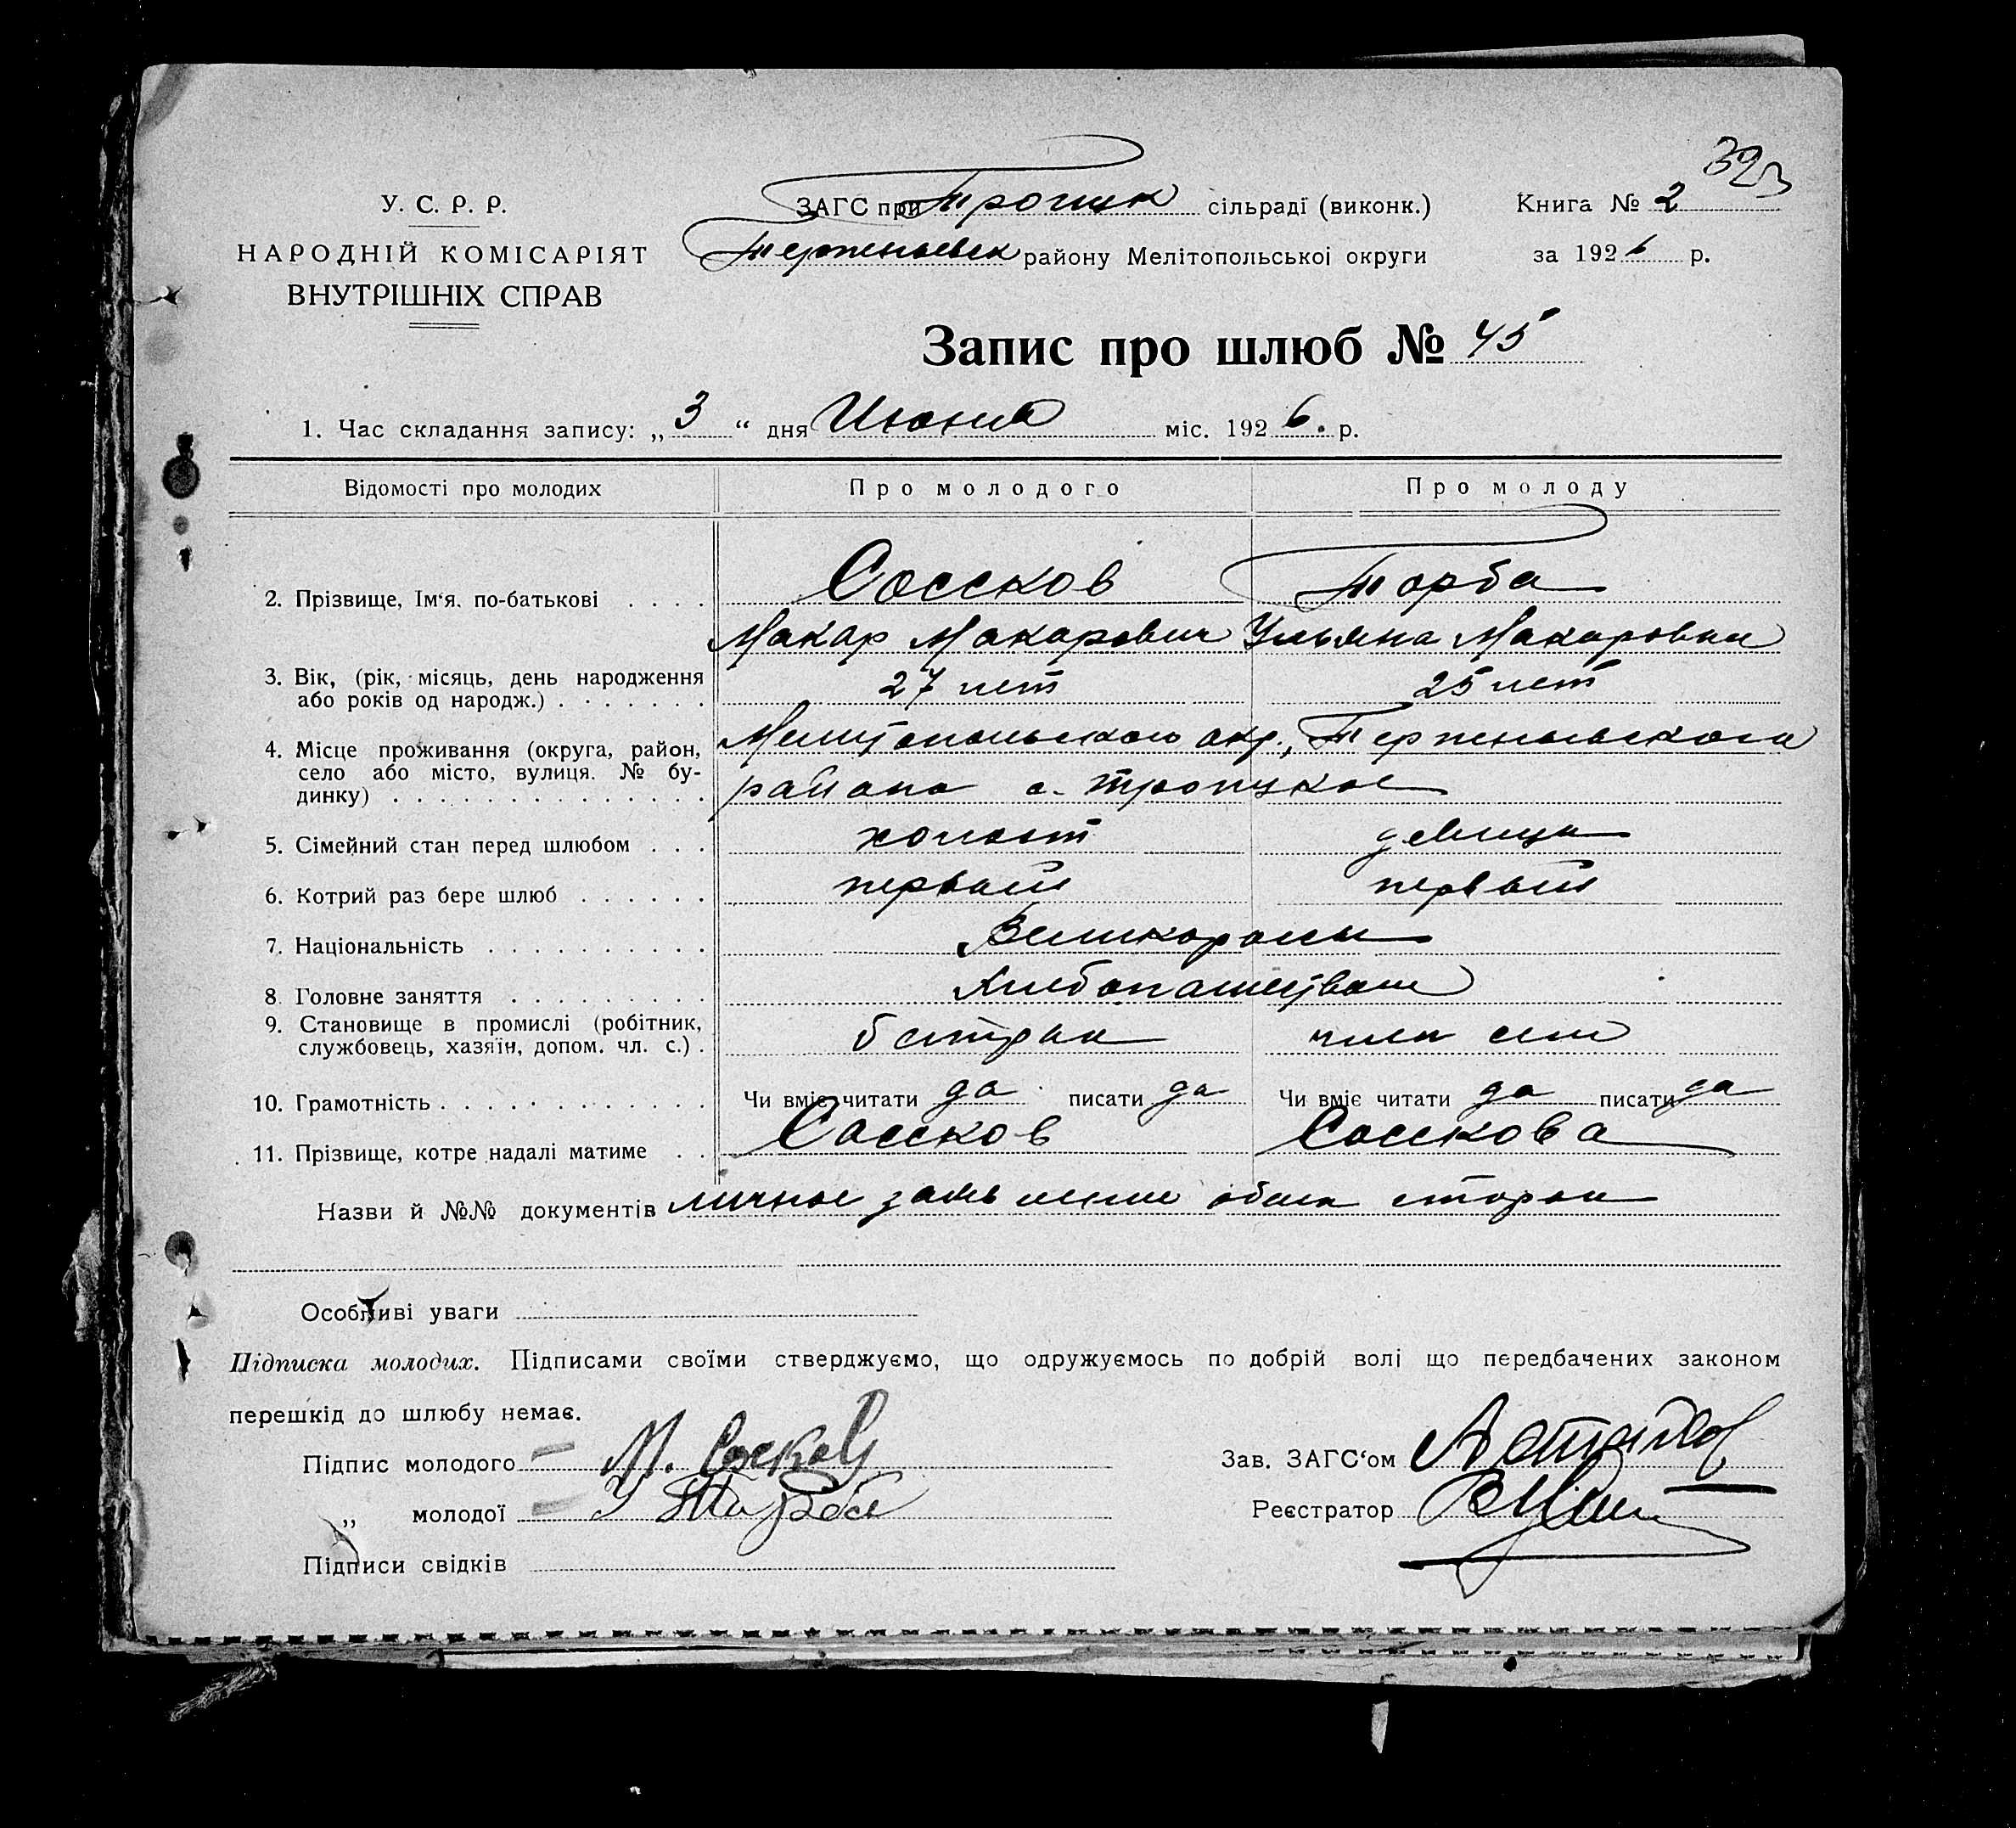 323
У. С. Р. Р.
НАРОДНІЙ КОМІСАРІЯТ
ВНУТРІШНІХ СПРАВ
ЗАГС при Троицк сільраді (виконк.)
Терпеньевск району Мелітопольської округи
Книга № 2
за 1926 р.
Запис про шлюб № 45
1. Час складання запису: „3“ дня Июня міс. 1926. р.
Відомості про молодих Про молодого Про молоду
2. Прізвище, Ім‘я. по-батькові . . . . Соссков Торба
Макар Макарович Ульяна Макаровна
3. Вік, (рік, місяць, день народження
або років од народж.) . . . . . . . 27 лет 25 лет
4. Місце проживання (округа, район, Мелитопольского окр., Терпеньевского
село або місто, вулиця. № бу-
динку) . . . . . . . . . . . . . . района с. Троицкое
5. Сімейний стан перед шлюбом . . . холост девица
6. Котрий раз бере шлюб . . . . . . первый первый
7. Національність . . . . . . . . . . Великороссы
8. Головне заняття . . . . . . . . . Хлебопашество
9. Становище в промислі (робітник,
службовець, хазяїн, допом. чл. с.) . батрак член сем
10. Грамотність . . . . . . . . . . . . Чи вміє читати да писати да Чи вміє читати да писати да
11. Прізвище, котре надалі матиме . . Соссков Соскова
Назви й №№ документів личное заявление обеих сторон
Особливі уваги
Підписка молодих. Підписами своїми стверджуємо, що одружуємось по добрій волі що передбачених законом
перешкід до шлюбу немає.
Підпис молодого М. Сосков
„ молодої У Торба
Підписи свідків
Зав. ЗАГС‘ом
Реєстратор